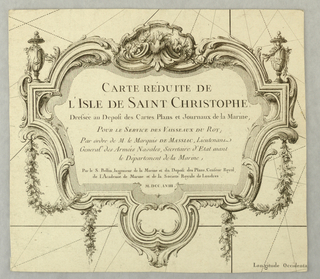 CARTE REDUITE DE
L'ISLE DE SAINT CHRISTOPHE
Dressée au Depost des Cartes Plans et Journaux de la Marine,
POUR LE SERVICE DES VAISSEAUX DU ROY;
Par ordre de M. le Marquis DE MASSIAC, Lieutenant
General des Armées Navales, Secretaire d'Etat ayant
le Departement de la Marine;
Par le S. Bellin Ingenieur de la Marine et du Depost des Plans, Censeur Royal,
de l'Academie de Marine et de la Societé Royale de Londres
M. DCC. LVIII.
Longitude Occidenta